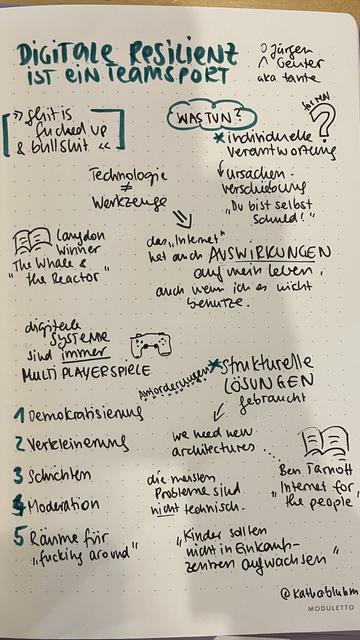 DIGITALE RESILIENZ
IST EIN TEAMSPORT
Jürgen
Geuter
aka tante
"shit is
fucked up
& bullshit"
WAS TUN?
for MN
?
* individuelle
Verantwortung
Ursachen-
verschiebung
"Du bist selbst
Schuld!"
Technologie
≠
Werkzeuge
das "Internet"
hat auch AUSWIRKUNGEN
auf mein Leben,
auch wenn ich es nicht
benutze.
Langdon
Winner
"The Whale &
the Reactor"
digitale
SYSTEME
sind immer
MULTIPLAYERSPIELE
Anforderungen
* strukturelle
LÖSUNGEN
gebraucht
1 Demokratisierung
2 Verkleinerung
3 Schichten
4 Moderation
5 Räume für
"fucking around"
we need new
architectures
Ben Tarnoff
"Internet for
the people"
die meisten
Probleme sind
nicht technisch.
"Kinder sollten
nicht in Einkauf-
zentren aufwachsen"
@kathabluhm
MODULETTO